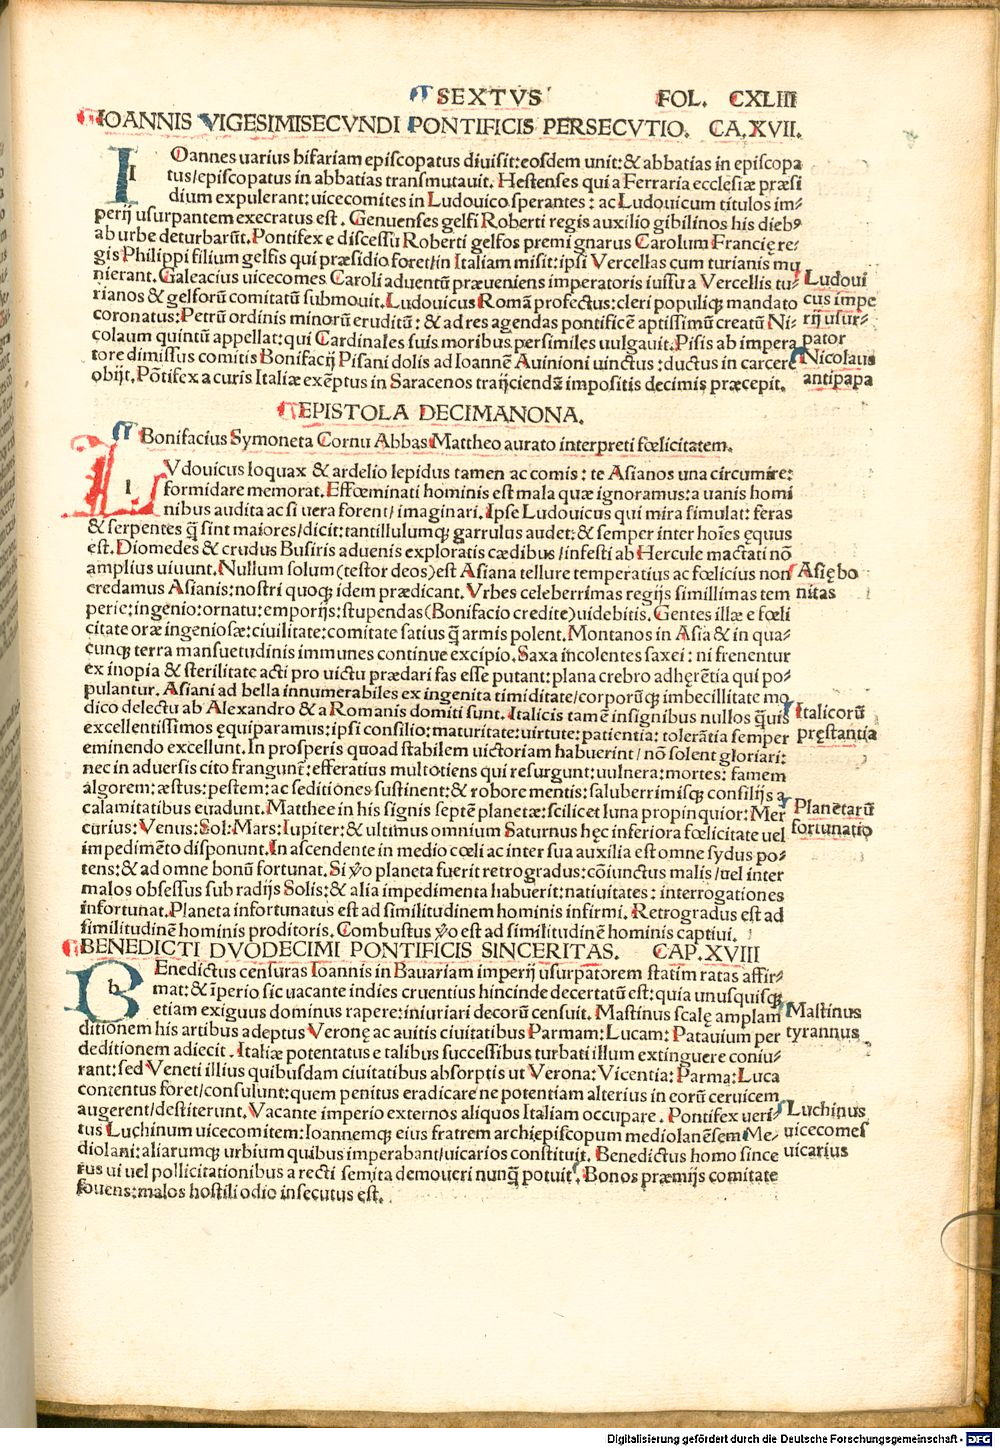 SEXTVS FOL. CXLIII
IOANNIS VIGESIMISECVNDI PONTIFICIS PERSECVTIO. CA.XVII.
IOannes uarius bifariam episcopatus diuisit:eosdem unit:& abbatias in episcopa
tus/episcopatus in abbatias transmutauit. Hestenses qui a Ferraria ecclesiæ præsi
dium expulerant:uicecomites in Ludouico sperantes: ac Ludouicum titulos im-
perij usurpantem execratus est. Genuenses gelfi Roberti regis auxilio gibilinos his diebꝰ
ab urbe deturbarūt. Pontifex e discessu Roberti gelfos premi ignarus Carolum Francię re-
gis Philippi filium gelfis qui præsidio foret/in Italiam misit:ipsi Vercellas cum turianis mu
nierant. Galeacius uicecomes Caroli aduentū præueniens imperatoris iussu a Vercellis tu-
rianos & gelforū comitatū submouit. Ludouicus Romā profectus:cleri populiqꝫ mandato
coronatus:Petrū ordinis minorū eruditū: & ad res agendas pontificē aptissimū creatū Ni-
colaum quintū appellat:qui Cardinales suis moribus persimiles uulgauit. Pisis ab impera
tore dimissus comitis Bonifacij Pisani dolis ad Ioannē Auinioni uinctus:ductus in carcere
obijt. Pōtifex a curis Italiæ exēptus in Saracenos traijciendā impositis decimis præcepit.
Ludoui
cus impe
rij usur-
pator
Nicolaus
antipapa
EPISTOLA DECIMANONA.
Bonifacius Symoneta Cornu Abbas Mattheo aurato interpreti fœlicitatem.
LVdouicus loquax & ardelio lepidus tamen ac comis: te Asianos una circumire:
formidare memorat. Effœminati hominis est mala quæ ignoramus:a uanis homi
nibus audita ac si uera forent/imaginari. Ipse Ludouicus qui mira simulat: feras
& serpentes q̄ sint maiores/dicit:tantillulumqꝫ garrulus audet:& semper inter hoīes ęquus
est. Diomedes & crudus Busiris aduenis exploratis cædibus/infesti ab Hercule mactati nō
amplius uiuunt. Nullum solum(testor deos)est Asiana tellure temperatius ac fœlicius non
credamus Asianis:nostri quoqꝫ idem prædicant. Vrbes celeberrimas regijs simillimas tem
perie:ingenio:ornatu:emporijs:stupendas(Bonifacio credite)uidebitis. Gentes illæ e fœli
citate oræ ingeniosæ:ciuilitate:comitate satius q̄ armis polent. Montanos in Asia & in qua-
cunqꝫ terra mansuetudinis immunes continue excipio. Saxa incolentes saxei: ni frenentur
ex inopia & sterilitate acti pro uictu prædari fas esse putant:plana crebro adhęrētia qui po-
pulantur. Asiani ad bella innumerabiles ex ingenita timiditate/corporūqꝫ imbecillitate mo
dico delectu ab Alexandro & a Romanis domiti sunt. Italicis tamē insignibus nullos q̄uis
excellentissimos ęquiparamus:ipsi consilio:maturitate:uirtute:patientia: tolerātia semper
eminendo excellunt. In prosperis quoad stabilem uictoriam habuerint/nō solent gloriari:
nec in aduersis cito frangunt̄:efferatius multotiens qui resurgunt:uulnera:mortes: famem
algorem:æstus:pestem:ac seditiones sustinent:& robore mentis:saluberrimisqꝫ consilijs a
calamitatibus euadunt. Matthee in his signis septē planetæ:scilicet luna propinquior: Mer
curius: Venus:Sol:Mars:Iupiter:& ultimus omnium Saturnus hęc inferiora fœlicitate uel
impedimēto disponunt. In ascendente in medio cœli ac inter sua auxilia est omne sydus po-
tens:& ad omne bonū fortunat. Si ꝟo planeta fuerit retrogradus:cōiunctus malis/uel inter
malos obsessus sub radijs Solis:& alia impedimenta habuerit:natiuitates: interrogationes
infortunat. Planeta infortunatus est ad similitudinem hominis infirmi. Retrogradus est ad
similitudinē hominis proditoris. Combustus ꝟo est ad similitudinē hominis captiui.
Asię bo
nitas
Italicorū
pręstantia
Planetarū
fortunatio
BENEDICTI DVODECIMI PONTIFICIS SINCERITAS. CAP.XVIII
BEnedictus censuras Ioannis in Bauariam imperij usurpatorem statim ratas affir-
mat:& īperio sic uacante indies cruentius hincinde decertatū est:quia unusquisqꝫ
etiam exiguus dominus rapere:iniuriari decorū censuit. Mastinus scalę amplam
ditionem his artibus adeptus Veronę ac auitis ciuitatibus Parmam:Lucam: Patauium per
deditionem adiecit. Italiæ potentatus e talibus successibus turbati illum extinguere coniu-
rant:sed Veneti illius quibusdam ciuitatibus absorptis ut Verona:Vicentia: Parma:Luca
contentus foret/consulunt:quem penitus eradicare ne potentiam alterius in eorū ceruicem
augerent/destiterunt. Vacante imperio externos aliquos Italiam occupare. Pontifex ueri-
tus Luchinum uicecomitem:Ioannemqꝫ eius fratrem archiepiscopum mediolanēsem Me-
diolani:aliarumqꝫ urbium quibus imperabant/uicarios constituit. Benedictus homo since
rus ui uel pollicitationibus a recti semita demoueri nunq̄ potuit. Bonos præmijs comitate
fouens:malos hostili odio insecutus est.
Mastinus
tyrannus
Luchinus
uicecomes
uicarius
Digitalisierung gefördert durch die Deutsche Forschungsgemeinschaft - DFG